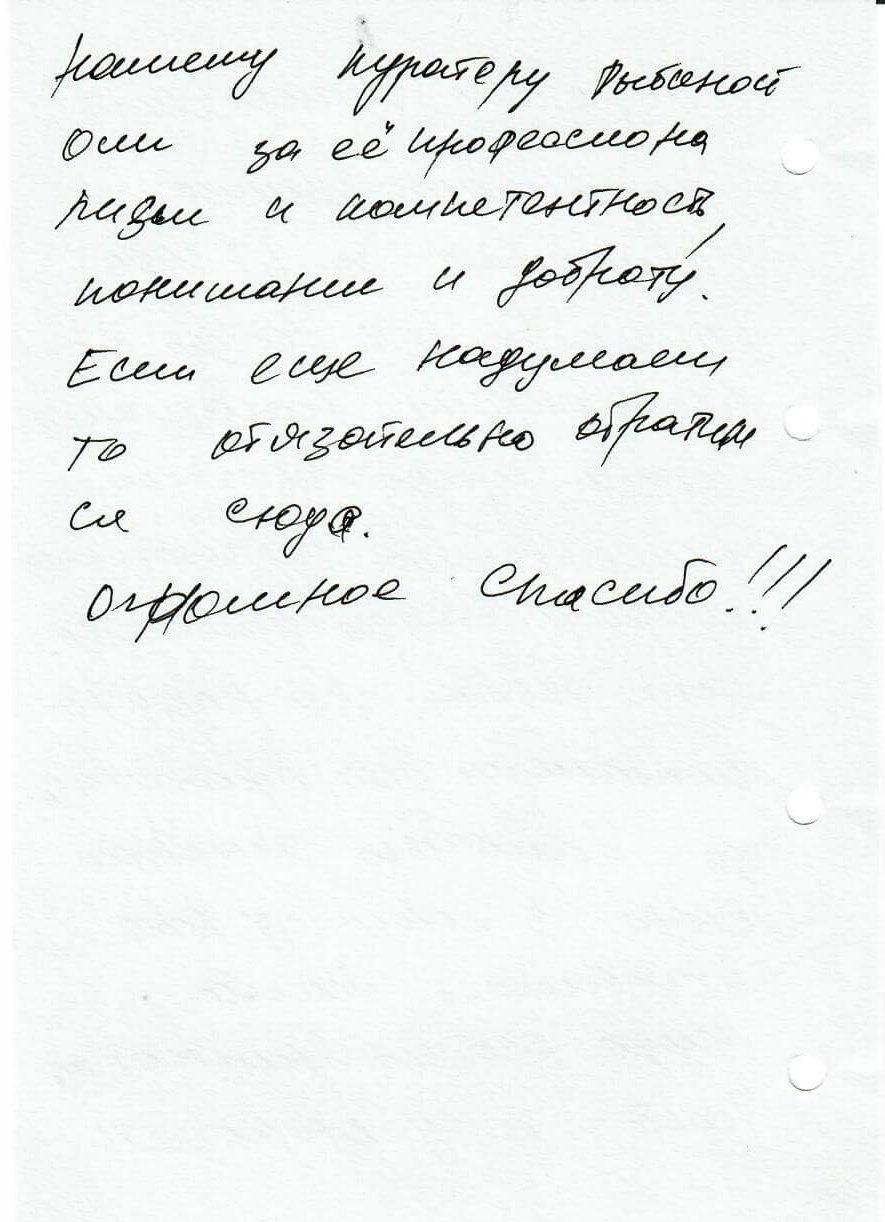 нашему куратору Рыбсной
Оли за её професиона
лизм и компетентность,
понимании и доброту!
Если еще надумаем
то обязательно обратим
ся сюда.
Огромное спасибо!!!